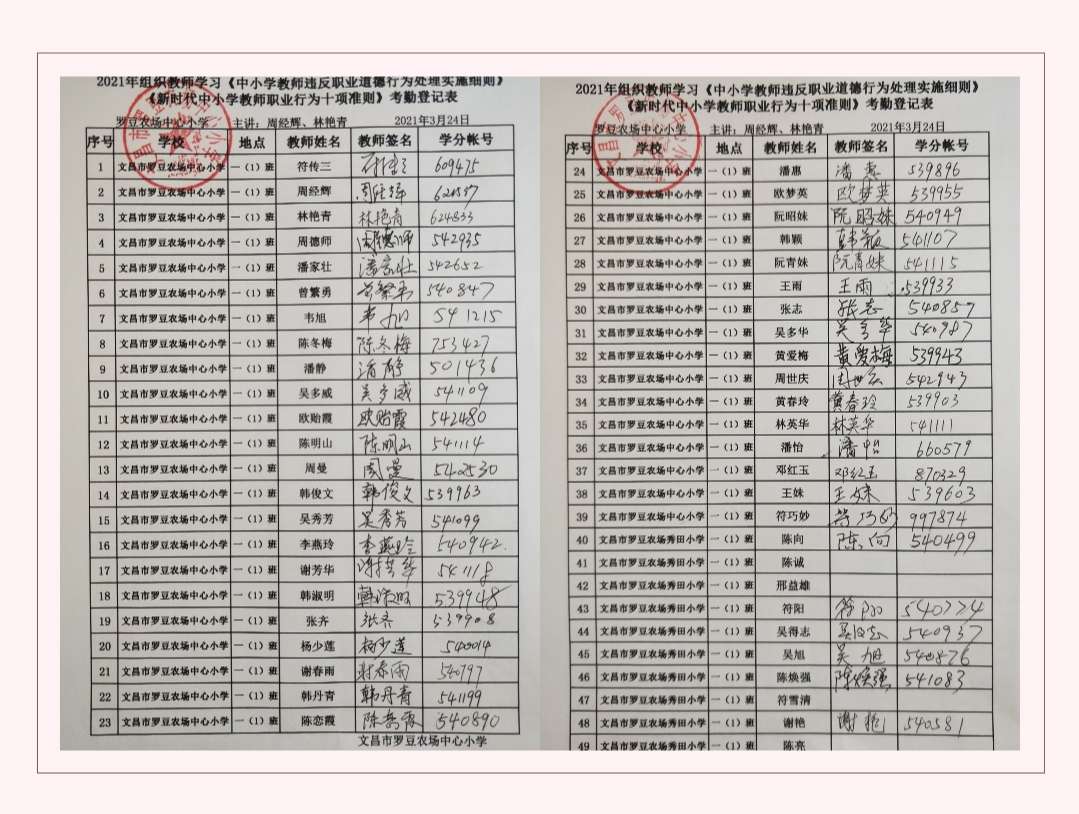 2021年组织教师学习《中小学教师违反职业道德行为处理实施细则》
《新时代中小学教师职业行为十项准则》考勤登记表
罗豆农场中心小学 主讲：周经辉、林艳青 2021年3月24日
序号 学校 地点 教师姓名 教师签名 学分帐号
1 文昌市罗豆农场中心小学 一（1）班 符传三 609475
2 文昌市罗豆农场中心小学 一（1）班 周经辉 周经辉
3 文昌市罗豆农场中心小学 一（1）班 林艳青 林艳青 624833
4 文昌市罗豆农场中心小学 一（1）班 周德师 周德师 542935
5 文昌市罗豆农场中心小学 一（1）班 潘家壮 潘家壮 542652
6 文昌市罗豆农场中心小学 一（1）班 曾繁勇 曾繁勇 540847
7 文昌市罗豆农场中心小学 一（1）班 韦旭 韦旭 541215
8 文昌市罗豆农场中心小学 一（1）班 陈冬梅 陈冬梅 753427
9 文昌市罗豆农场中心小学 一（1）班 潘静 潘静 501436
10 文昌市罗豆农场中心小学 一（1）班 吴多威 吴多威 541109
11 文昌市罗豆农场中心小学 一（1）班 欧贻霞 欧贻霞 542480
12 文昌市罗豆农场中心小学 一（1）班 陈明山 陈明山 541114
13 文昌市罗豆农场中心小学 一（1）班 周曼 周曼 542530
14 文昌市罗豆农场中心小学 一（1）班 韩俊文 韩俊文 539963
15 文昌市罗豆农场中心小学 一（1）班 吴秀芳 吴秀芳 541099
16 文昌市罗豆农场中心小学 一（1）班 李燕玲 李燕玲 540942.
17 文昌市罗豆农场中心小学 一（1）班 谢芳华 谢芳华 541118
18 文昌市罗豆农场中心小学 一（1）班 韩淑明 韩淑明 539948
19 文昌市罗豆农场中心小学 一（1）班 张齐 张齐 539908
20 文昌市罗豆农场中心小学 一（1）班 杨少莲 杨少莲 540014
21 文昌市罗豆农场中心小学 一（1）班 谢春雨 谢春雨 540797
22 文昌市罗豆农场中心小学 一（1）班 韩丹青 韩丹青 541199
23 文昌市罗豆农场中心小学 一（1）班 陈恋霞 陈恋霞 540890
文昌市罗豆农场中心小学
2021年组织教师学习《中小学教师违反职业道德行为处理实施细则》
《新时代中小学教师职业行为十项准则》考勤登记表
罗豆农场中心小学 主讲：周经辉、林艳青 2021年3月24日
序号 学校 地点 教师姓名 教师签名 学分帐号
24 文昌市罗豆农场中心小学 一（1）班 潘惠 潘惠 539896
25 文昌市罗豆农场中心小学 一（1）班 欧梦英 欧梦英 539955
26 文昌市罗豆农场中心小学 一（1）班 阮昭妹 阮昭妹 540949
27 文昌市罗豆农场中心小学 一（1）班 韩颖 韩颖 541107
28 文昌市罗豆农场中心小学 一（1）班 阮青妹 阮青妹 541115
29 文昌市罗豆农场中心小学 一（1）班 王雨 王雨 539933
30 文昌市罗豆农场中心小学 一（1）班 张志 张志 540857
31 文昌市罗豆农场中心小学 一（1）班 吴多华 吴多华 540987
32 文昌市罗豆农场中心小学 一（1）班 黄爱梅 黄爱梅 539943
33 文昌市罗豆农场中心小学 一（1）班 周世庆 周世庆 542943
34 文昌市罗豆农场中心小学 一（1）班 黄春玲 黄春玲 539903
35 文昌市罗豆农场中心小学 一（1）班 林英华 林英华 541111
36 文昌市罗豆农场中心小学 一（1）班 潘怡 潘怡 660579
37 文昌市罗豆农场中心小学 一（1）班 邓红玉 邓红玉 870329
38 文昌市罗豆农场中心小学 一（1）班 王妹 王妹 539603
39 文昌市罗豆农场中心小学 一（1）班 符巧妙 符巧妙 997874
40 文昌市罗豆农场秀田小学 一（1）班 陈向 陈向 540499
41 文昌市罗豆农场秀田小学 一（1）班 陈诚
42 文昌市罗豆农场秀田小学 一（1）班 邢益雄
43 文昌市罗豆农场秀田小学 一（1）班 符阳 符阳 540774
44 文昌市罗豆农场秀田小学 一（1）班 吴得志 吴得志 540937
45 文昌市罗豆农场秀田小学 一（1）班 吴旭 吴旭 540876
46 文昌市罗豆农场秀田小学 一（1）班 陈焕强 陈焕强 541083
47 文昌市罗豆农场秀田小学 一（1）班 符雪清
48 文昌市罗豆农场秀田小学 一（1）班 谢艳 谢艳 540581
49 文昌市罗豆农场秀田小学 一（1）班 陈亮